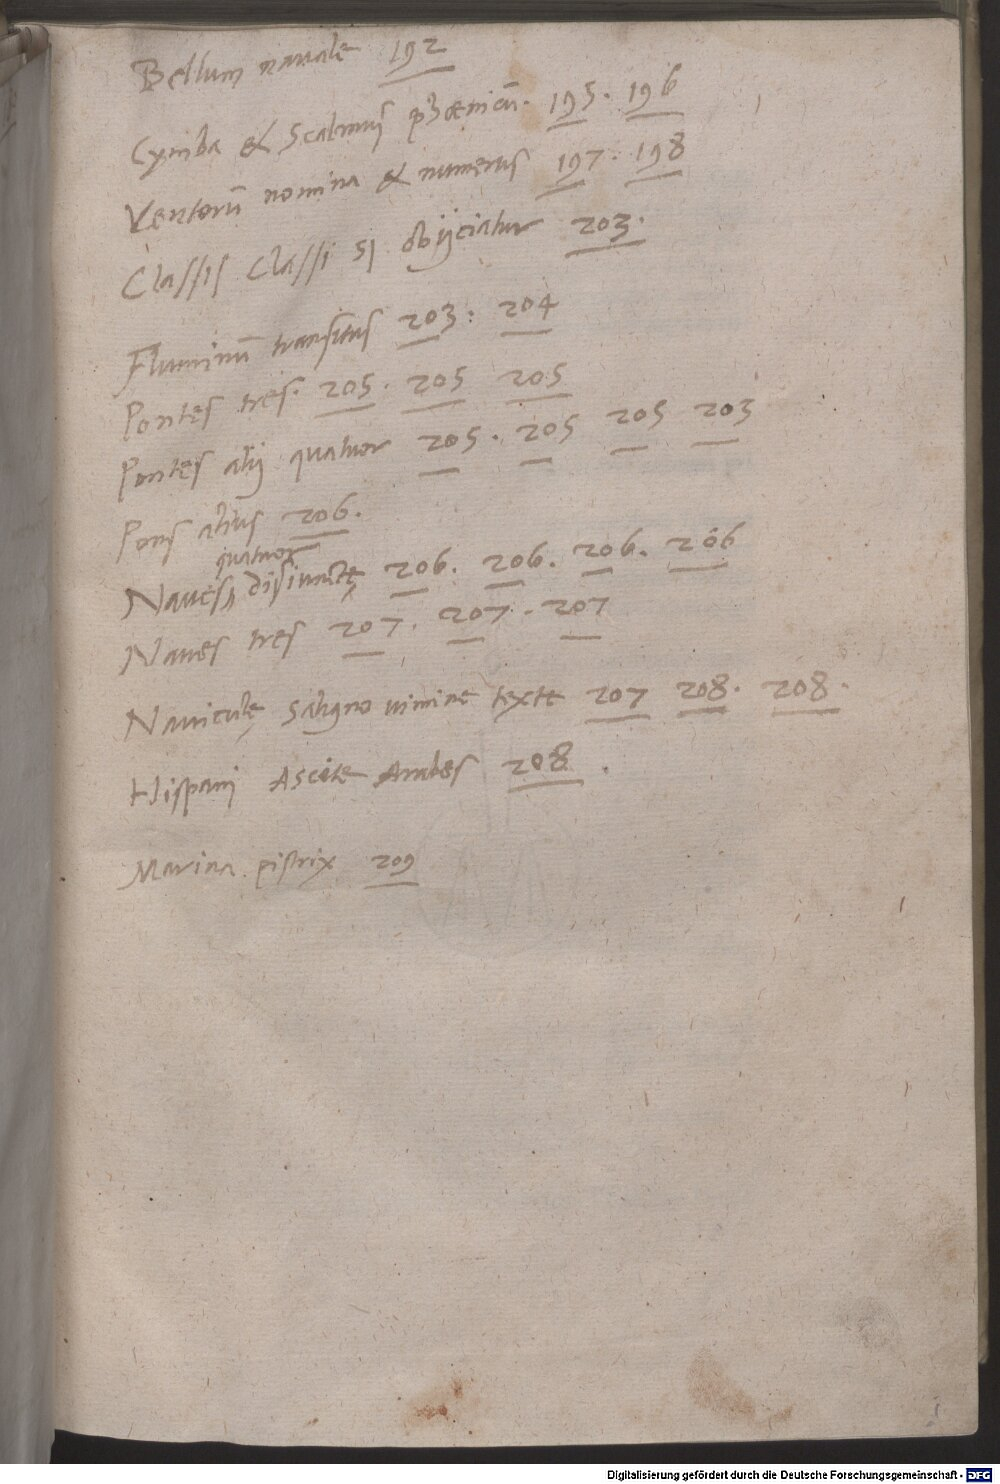 Bellum nauale 192
Cymba & Scalmus phœnicū. 195. 196
Ventorū nomina & numerus 197. 198
Classis Classi si obijciatur 203.
Fluminū transitus 203. 204
Pontes tres. 205. 205 205
Pontes alij quatuor 205. 205 205 203
Pons alius 206.
quatuor
Naues, disiunctę 206. 206. 206. 206
Naues tres 207. 207. 207
Nauiculę saligno uimine texte 207 208. 208.
Hispani Ascite Arabes 208.
Marina pistrix 209
Digitalisierung gefördert durch die Deutsche Forschungsgemeinschaft - DFG